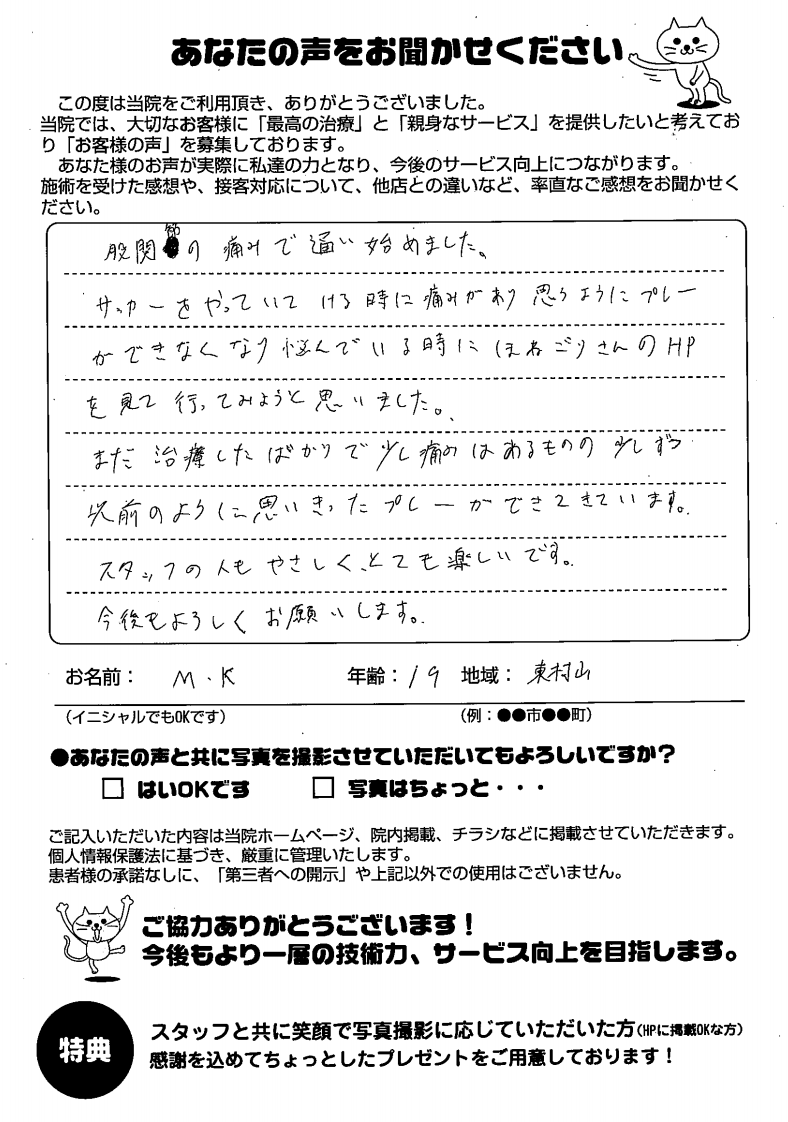 あなたの声をお聞かせください
この度は当院をご利用頂き、ありがとうございました。
当院では、大切なお客様に「最高の治療」と「親身なサービス」を提供したいと考えてお
り「お客様の声」を募集しております。
あなた様のお声が実際に私達の力となり、今後のサービス向上につながります。
施術を受けた感想や、接客対応について、他店との違いなど、率直なご感想をお聞かせく
ださい。
股関節の痛みで通い始めました。
サッカーをやっていて ける時に痛みがあり 思うようにプレー
ができなくなり 悩んでいる時に ほねごりさんのHP
を見て 行ってみようと思いました。
まだ 治療したばかりで 少し痛みはあるものの 少しずつ
以前のように思いきったプレーができてきています。
スタッフの人もやさしく、とても楽しいです。
今後もよろしくお願いします。
お名前： M.K 年齢： 19 地域： 東村山
（イニシャルでもOKです） （例：●●市●●町）
●あなたの声と共に写真を撮影させていただいてもよろしいですか？
□ はいOKです □ 写真はちょっと・・・
ご記入いただいた内容は当院ホームページ、院内掲載、チラシなどに掲載させていただきます。
個人情報保護法に基づき、厳重に管理いたします。
患者様の承諾なしに、「第三者への開示」や上記以外での使用はございません。
ご協力ありがとうございます！
今後もより一層の技術力、サービス向上を目指します。
特典
スタッフと共に笑顔で写真撮影に応じていただいた方（HPに掲載OKな方）
感謝を込めてちょっとしたプレゼントをご用意しております！